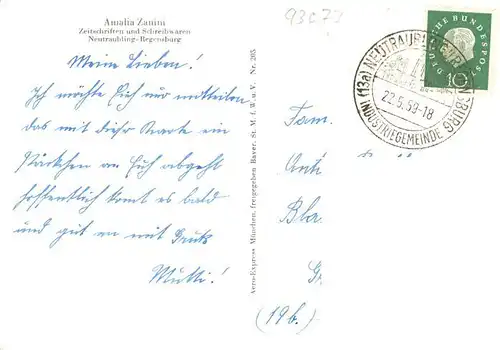 Amalia Zanini
Zeitschriften und Schreibwaren
Neutraubling-Regensburg
93073
Meine Lieben!
Ich möchte Euch nur mitteilen
das mit dieser Karte ein
Päckchen an Euch abgeht
hoffentlich komt es bald
und gut an mit Gruß
Mutti!
Aero-Express München, freigegeben Bayer. St. M. f. W. u. V. Nr. 205
(13a) NEUTRAUBLING ÜBER REGENSBURG
22.5.59-18
INDUSTRIEGEMEINDE
DEUTSCHE BUNDESPOST
10
Fam.
Anti
Bla
Gr
(19b.)